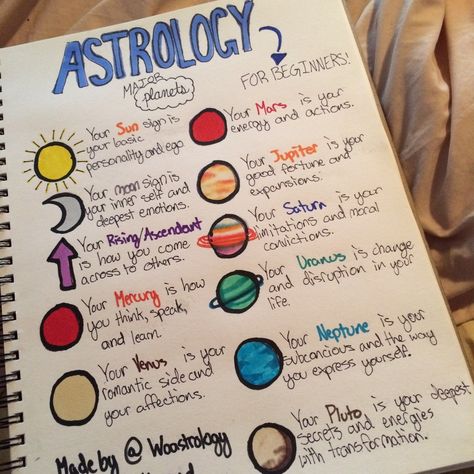 ASTROLOGY
MAJOR
planets
FOR BEGINNERS!
Your Sun sign is
your basic
personality and ego
Your moon sign is
your inner self and
deepest emotions.
Your Rising/Ascendant
is how you come
across to others.
Your Mercury is how
you think, speak,
and learn.
Your Venus is your
romantic side and
your affections.
Made by @ Woostrology
Your Mars is your
energy and actions.
Your Jupiter is your
good fortune and
expansions.
Your Saturn is your
limitations and moral
convictions.
Your Uranus is change
and disruption in your
life.
Your Neptune is your
subcancious and the way
you express yourself.
Your Pluto is your deepest
secrets and energies
with transformation.